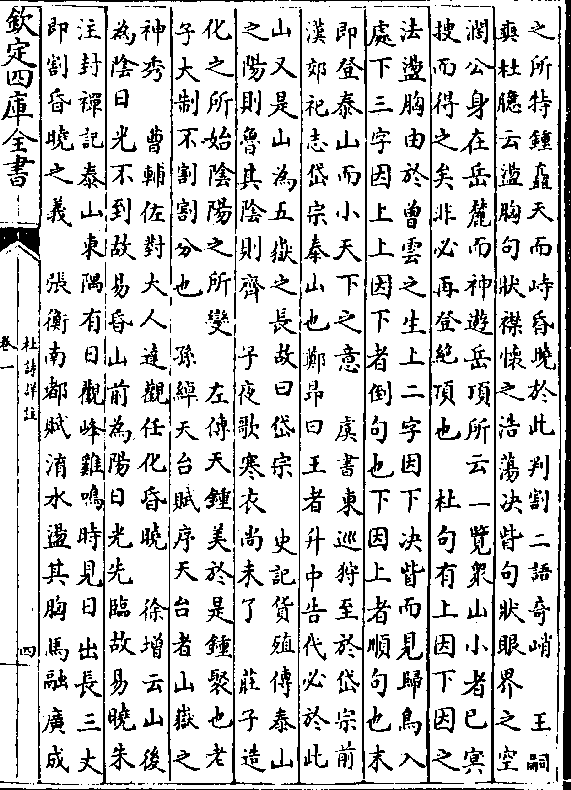 之所特鍾矗天而峙昏曉於此判割二語奇峭　王嗣
奭杜臆云盪胸句狀襟懷之浩蕩决眥句狀眼界之空
濶公身在岳麓而神遊岳頂所云一覽衆山小者已冥
搜而得之矣非必再登絶頂也　杜句有上因下因之
法盪胸由於曾雲之生上二字因下决眥而見歸鳥入
處下三字因上上因下者倒句也下因上者順句也末
即登泰山而小天下之意　虞書東巡狩至於岱宗前
漢郊祀志岱宗泰山也鄭昂曰王者升中告代必於此
山又是山為五嶽之長故曰岱宗　史記貨殖傳泰山
之陽則魯其陰則齊　子夜歌寒衣尚未了　莊子造
化之所始陰陽之所變　左傳天鍾美於是鍾聚也老
子大制不割割分也　孫綽天台賦序天台者山嶽之
神秀　曹輔佐對大人達觀任化昏曉　徐增云山後
為陰日光不到故易昏山前為陽日光先臨故易曉朱
注封禪記泰山東隅有日觀峰雞鳴時見日出長三丈
即割昏曉之義　張衡南都賦淯水盪其胸馬融廣成
欽定四庫全書
杜詩詳註
卷一
四